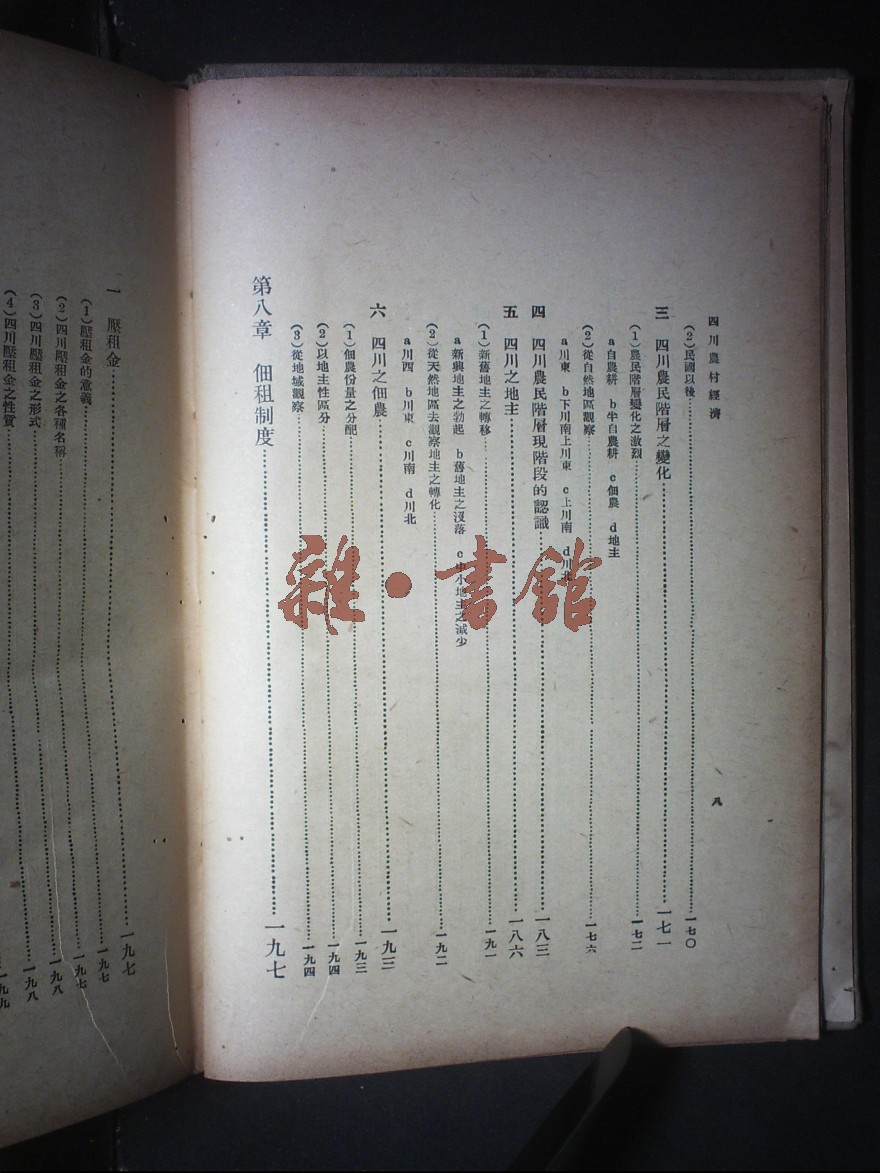 四川農村經濟
八
(2)民國以後……一七〇
三 四川農民階層之變化……一七一
(1)農民階層變化之激烈……一七二
a自農耕 b半自農耕 c佃農 d地主
(2)從自然地區觀察……一七六
a川東 b下川南上川東 c上川南 d川北
四 四川農民階層現階段的認識……一八三
五 四川之地主……一八六
(1)新舊地主之轉移……一九一
a新興地主之勃起 b舊地主之沒落 c中小地主之減少
(2)從天然地區去觀察地主之轉化……一九二
a川西 b川東 c川南 d川北
六 四川之佃農……一九三
(1)佃農份量之分配……一九三
(2)以地主性區分……一九四
(3)從地域觀察……一九四
第八章 佃租制度……一九七
一 壓租金……一九七
(1)壓租金的意義……一九七
(2)四川壓租金之各種名稱……一九八
(3)四川壓租金之形式……一九八
(4)四川壓租金之性質……一九九
雜·書館